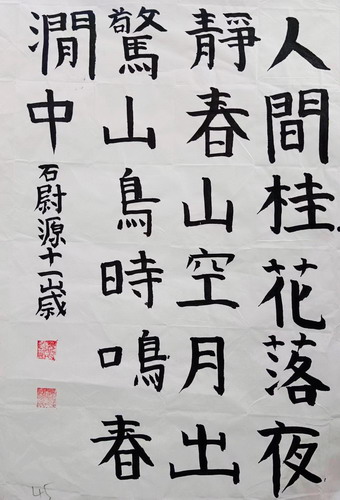 人間桂花落夜
靜春山空月出
驚山鳥時鳴春
澗中
石尉源十一歲
45